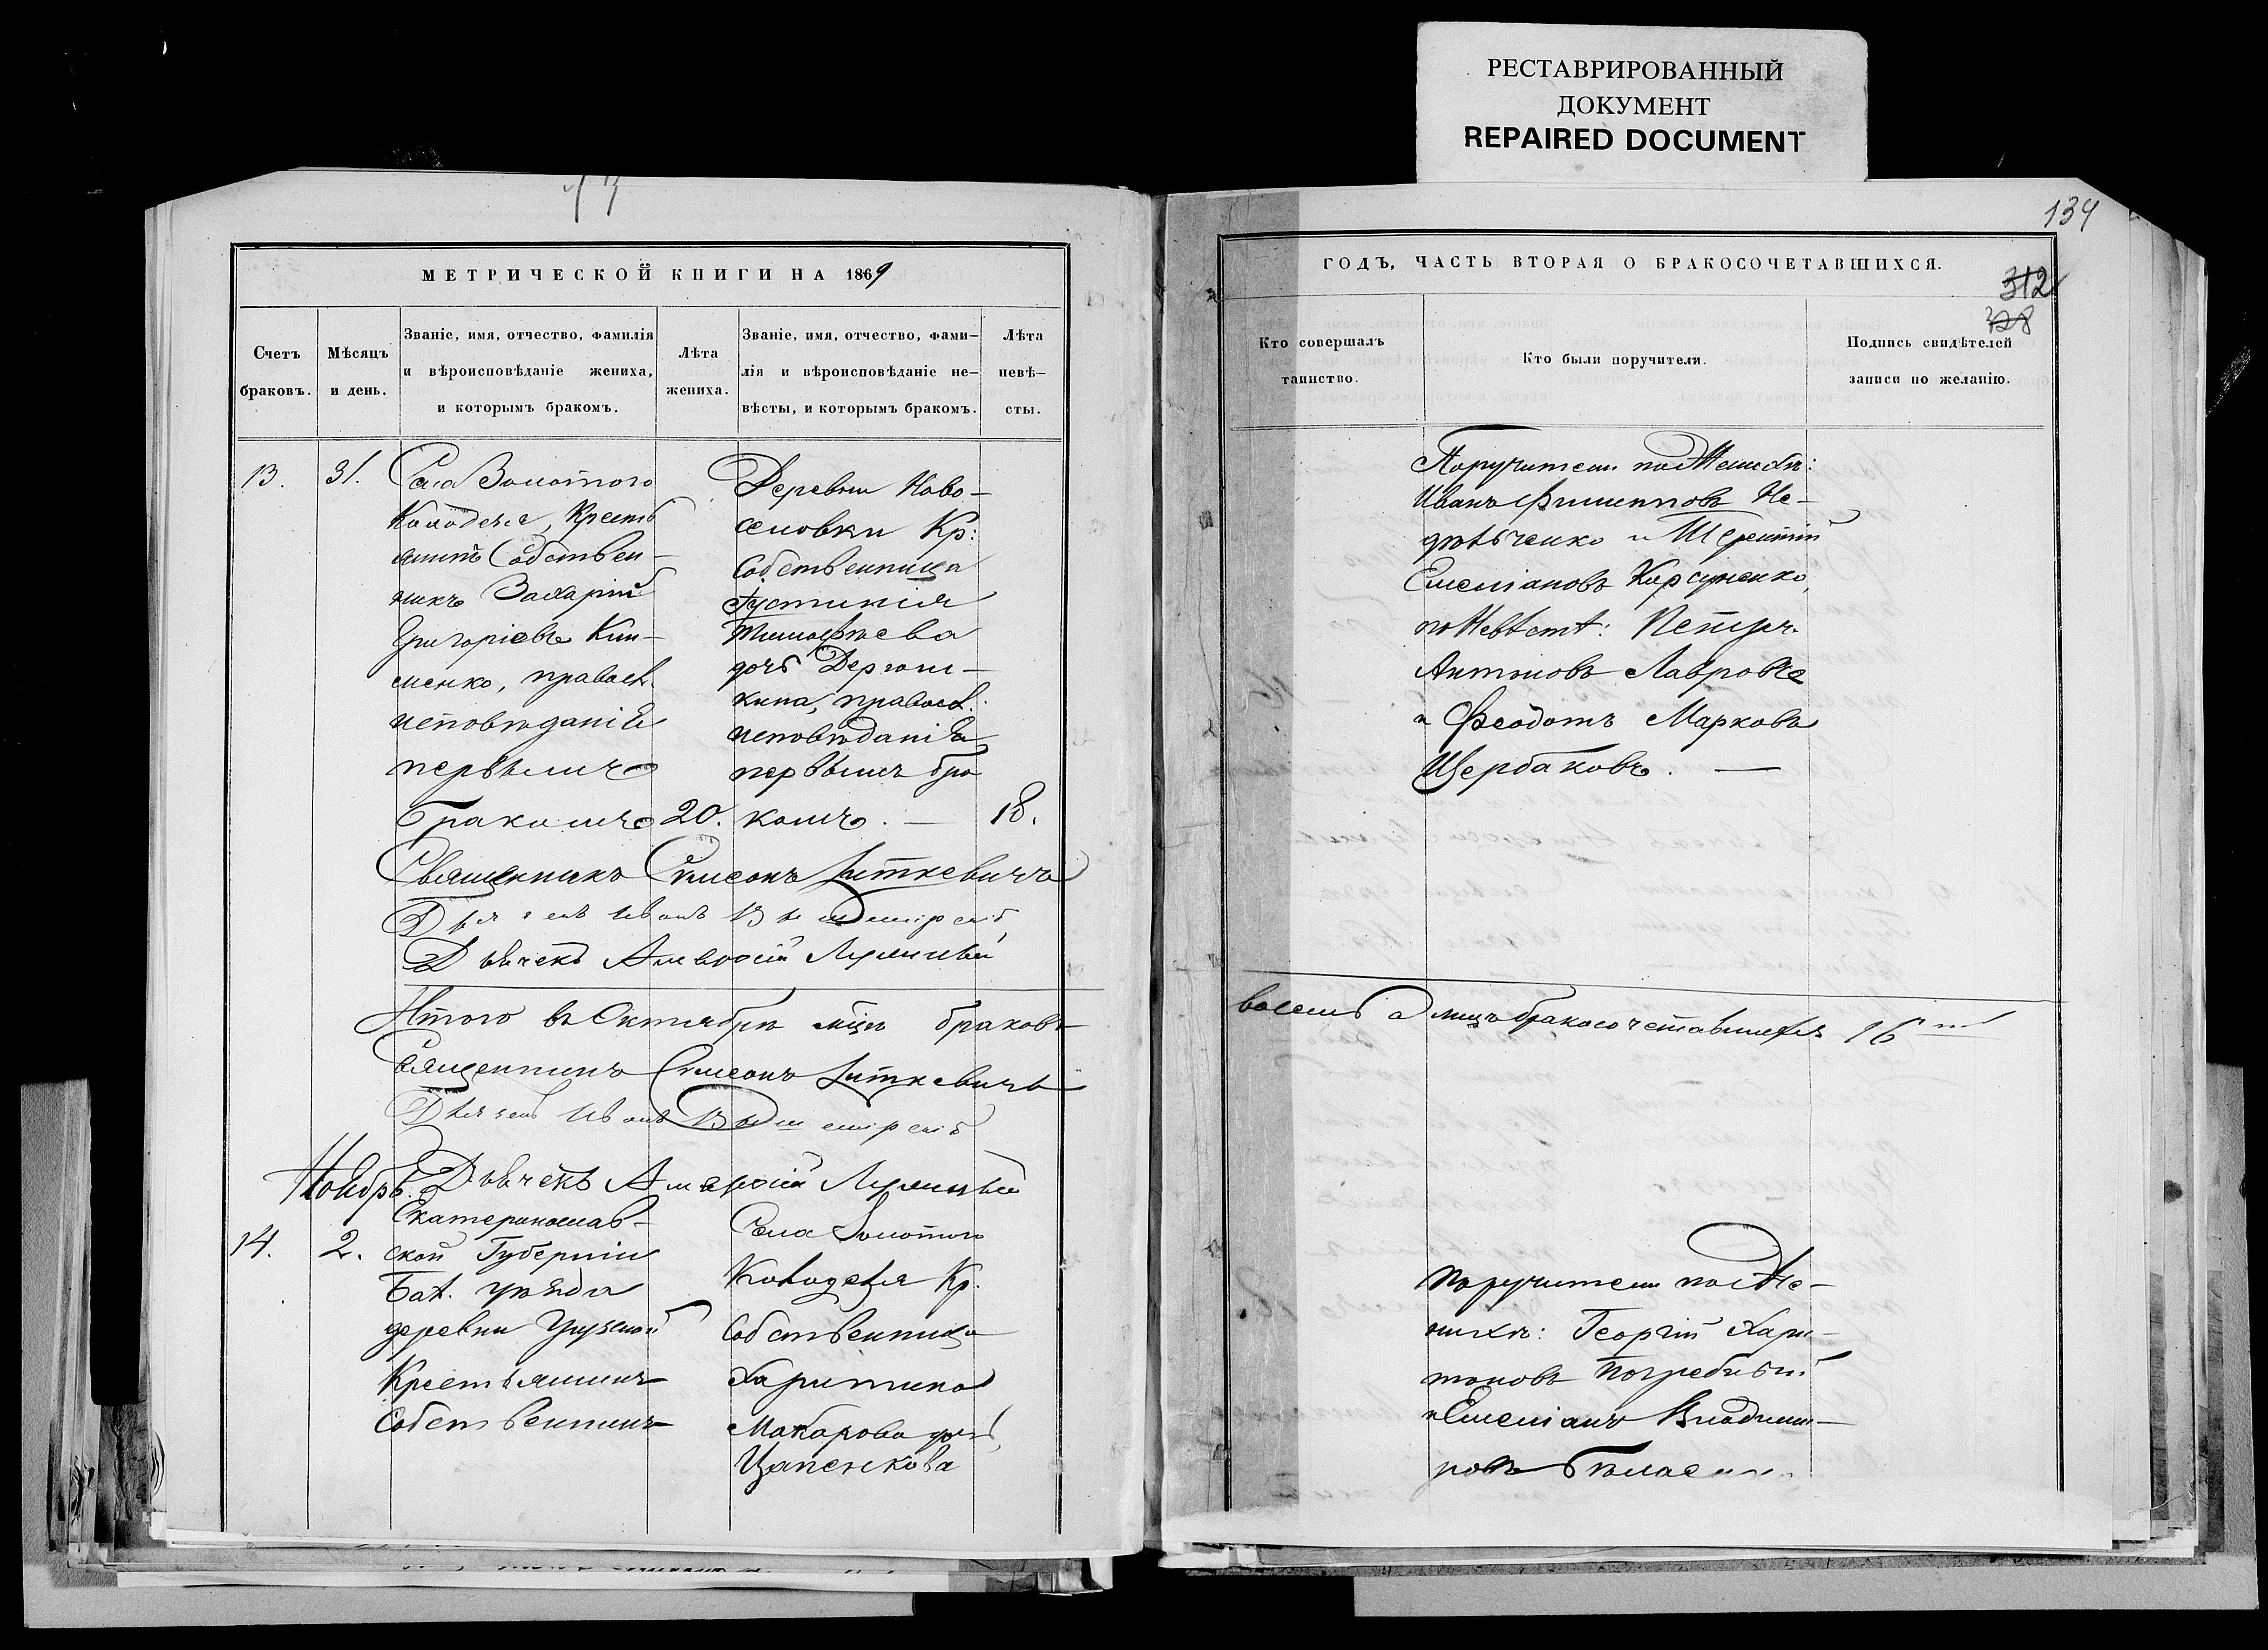 РЕСТАВРИРОВАННЫЙ
ДОКУМЕНТ
REPAIRED DOCUMENT
МЕТРИЧЕСКОЙ КНИГИ НА 1869
Счетъ
браковъ.
Мѣсяцъ
и день.
Званіе, имя, отчество, фамилія
и вѣроисповѣданіе жениха,
и которымъ бракомъ.
Лѣта
жениха.
Званіе, имя, отчество, фами-
лія и вѣроисповѣданіе не-
вѣсты, и которымъ бракомъ.
Лѣта
невѣ-
сты.
13.
31.
Села Золотого
Колодезя, Кресть
янинъ Собствен-
никъ Захарій
Григоріевъ Кли-
менко, правосл.
исповѣданія
первымъ
бракомъ
20.
Деревни Ново-
селовки Кр:
Собственница
Іустинія
Тимофѣева
дочь
кина, правосл.
исповѣданія
первымъ бра
комъ. —
18.
Священникъ Симеонъ
Дьячекъ Иванъ
Дьячекъ Амвросій
Итого въ Октябрѣ мцѣ браковъ
Священникъ Симеонъ
Дьячекъ Иванъ
Дьячекъ Амвросій
Ноябрь.
14.
2.
Екатеринослав-
ской Губерніи
Бах. уѣзда
деревни
Крестьянинъ
Собственникъ
Села Золотого
Колодезя Кр.
Собственница
Харитина
Макарова дочь,
Цапенкова
134
ГОДЪ, ЧАСТЬ ВТОРАЯ О БРАКОСОЧЕТАВШИХСЯ.
312
328
Кто совершалъ
таинство.
Кто были поручители.
Подпись свидѣтелей
записи по желанію.
Поручители по Женихѣ:
Иванъ Филипповъ Не-
и Терентій
Емеліановъ Корсуненко,
по Невѣстѣ: Петръ
Антоновъ
и Феодотъ Марковъ
Щербаковъ. —
восемь а лицъ бракосочетавшихся 16
Поручители по Же-
нихѣ: Георгій Хари-
тоновъ Погребный
и Емеліанъ Владими-
ровъ